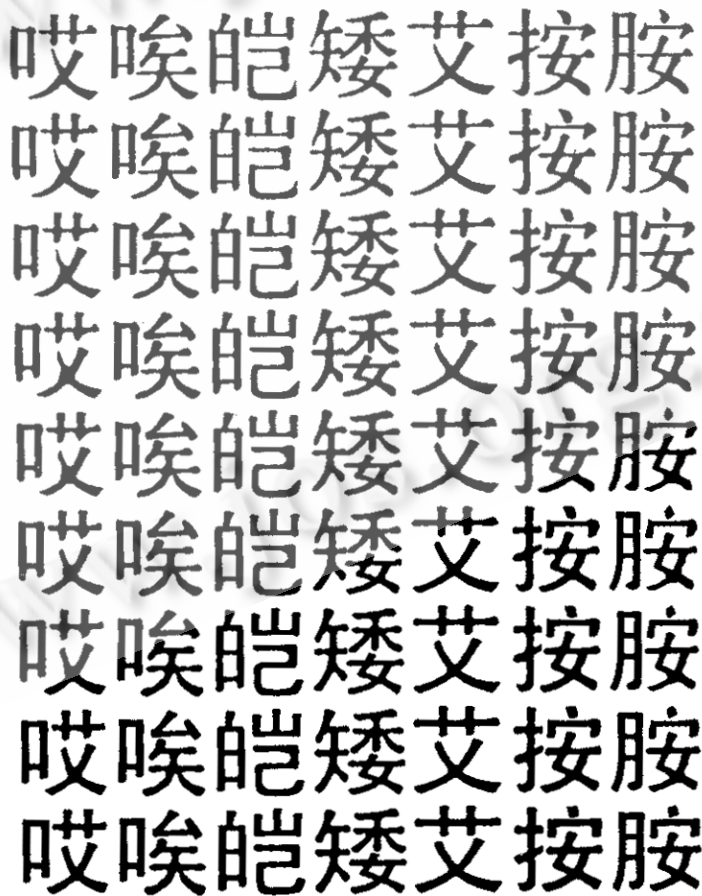 哎唉皑矮艾按胺
哎唉皑矮艾按胺
哎唉皑矮艾按胺
哎唉皑矮艾按胺
哎唉皑矮艾按胺
哎唉皑矮艾按胺
哎唉皑矮艾按胺
哎唉皑矮艾按胺
哎唉皑矮艾按胺